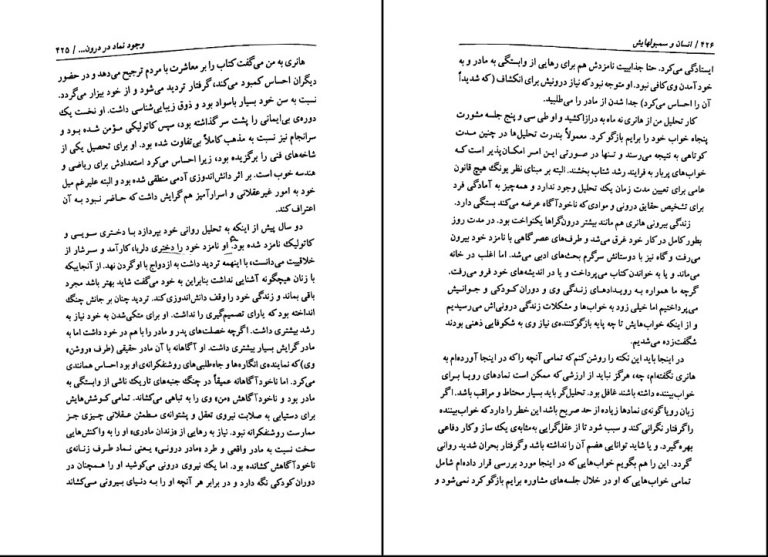 وجود نماد در درون... / ۴۲۵
هانری به من می‌گفت کتاب را بر معاشرت با مردم ترجیح می‌دهد و در حضور
دیگران احساس کمبود می‌کند، گرفتار تردید می‌شود و از خود بیزار می‌گردد.
نسبت به سن خود بسیار باسواد بود و ذوق زیبایی‌شناسی داشت. او نخست یک
دوره‌ی بی‌ایمانی را پشت سر گذاشته بود، سپس کاتولیکی مؤمن شده بود و
سرانجام نیز نسبت به مذهب کاملاً بی‌تفاوت شده بود. او برای تحصیل یکی از
شاخه‌های فنی را برگزیده بود، زیرا احساس می‌کرد استعدادش برای ریاضی و
هندسه خوب است. بر اثر دانش‌اندوزی آدمی منطقی شده بود و البته علیرغم میل
خود به امور غیرعقلانی و اسرارآمیز هم گرایش داشت که حاضر نبود به آن
اعتراف کند.
دو سال پیش از اینکه به تحلیل روانی خود بپردازد با دختری سویی و
کاتولیک نامزد شده بود. او نامزد خود را دختری دلربا، کارآمد و سرشار از
خلاقیت می‌دانست، با اینهمه تردید داشت به ازدواج با او گردن نهد. از آنجاییکه
با زنان هیچگونه آشنایی نداشت بنابراین به خود می‌گفت شاید بهتر باشد مجرد
باقی بماند و زندگی خود را وقف دانش‌اندوزی کند. تردید چنان بر جانش چنگ
انداخته بود که یارای تصمیم‌گیری را نداشت. او برای متکی‌شدن به خود نیاز به
رشد بیشتری داشت. اگرچه خصلت‌های پدر و مادر را با هم در خود داشت اما به
مادر گرایش بسیار بیشتری داشت. او آگاهانه با آن مادر حقیقی (طرف «روشن»
وی) که نماینده‌ی انگاره‌ها و جاه‌طلبی‌های روشنفکرانه‌ی او بود احساس همانندی
می‌کرد. اما ناخودآگاهانه عمیقاً در چنگ جنبه‌های تاریک ناشی از وابستگی به
مادر بود و ناخودآگاهش «من» وی را به تباهی می‌کشاند. تمامی کوشش‌هایش
برای دستیابی به صلابت نیروی تعقل و پشتوانه‌ی مطمئن عقلانی چیزی جز
ممارست روشنفکرانه نبود. نیاز به رهایی از «زندان مادری» او را به واکنش‌هایی
سخت نسبت به مادر واقعی و طرد «مادر درونی» یعنی نماد طرف زنانه‌ی
ناخودآگاهش کشانده بود. اما یک نیروی درونی می‌کوشید او را همچنان در
دوران کودکی نگه دارد و در برابر هر آنچه او را به دنیای بیرونی می‌کشاند
۴۲۶ / انسان و سمبولهایش
ایستادگی می‌کرد. حتا جذابیت نامزدش هم برای رهایی از وابستگی به مادر و به
خود آمدن وی کافی نبود. او متوجه نبود که نیاز درونیش برای انکشاف (که شدیداً
آن را احساس می‌کرد) جدا شدن از مادر را می‌طلبید.
کار تحلیل من از هانری نه ماه به درازا کشید و او طی سی و پنج جلسه مشورت
پنجاه خواب خود را برایم بازگو کرد. معمولاً بندرت تحلیل‌ها در چنین مدت
کوتاهی به نتیجه می‌رسند و تنها در صورتی این امر امکان‌پذیر است که
خواب‌های پربار به فرایند رشد شتاب بخشند. البته بر مبنای نظر یونگ هیچ قانون
عامی برای تعیین مدت زمان یک تحلیل وجود ندارد و همه‌چیز به آمادگی فرد
برای تشخیص حقایق درونی و موادی که ناخودآگاه عرضه می‌کند بستگی دارد.
زندگی بیرونی هانری هم مانند بیشتر درون‌گراها یکنواخت بود. در مدت روز
بطور کامل در کار خود غرق می‌شد و طرف‌های عصر گاهی با نامزد خود بیرون
می‌رفت و گاه نیز با دوستانش سرگرم بحث‌های ادبی می‌شد. اما اغلب در خانه
می‌ماند و یا به خواندن کتاب می‌پرداخت و یا در اندیشه‌های خود فرو می‌رفت.
گرچه ما همواره به رویدادهای زندگی وی و دوران کودکی و جوانیش
می‌پرداختیم اما خیلی زود به خواب‌ها و مشکلات زندگی درونی‌اش می‌رسیدیم
و از اینکه خواب‌هایش تا چه پایه بازگوکننده‌ی نیاز وی به شکوفایی ذهنی بودند
شگفت‌زده می‌شدیم.
در اینجا باید این نکته را روشن کنم که تمامی آنچه را که در اینجا آورده‌ام به
هانری نگفته‌ام، چه، هرگز نباید از ارزشی که ممکن است نمادهای رویا برای
خواب‌بیننده داشته باشند غافل بود. تحلیل‌گر باید بسیار محتاط و مراقب باشد. اگر
زبان رویاگونه‌ی نمادها زیاده از حد صریح باشد این خطر را دارد که خواب‌بیننده
را گرفتار نگرانی کند و سبب شود تا از عقل‌گرایی به‌مثابه‌ی یک ساز و کار دفاعی
بهره گیرد. و یا شاید توانایی هضم آن را نداشته باشد و گرفتار بحران شدید روانی
گردد. این را هم بگویم خواب‌هایی که در اینجا مورد بررسی قرار داده‌ام شامل
تمامی خواب‌هایی که او در خلال جلسه‌های مشاوره برایم بازگو کرد نمی‌شود و